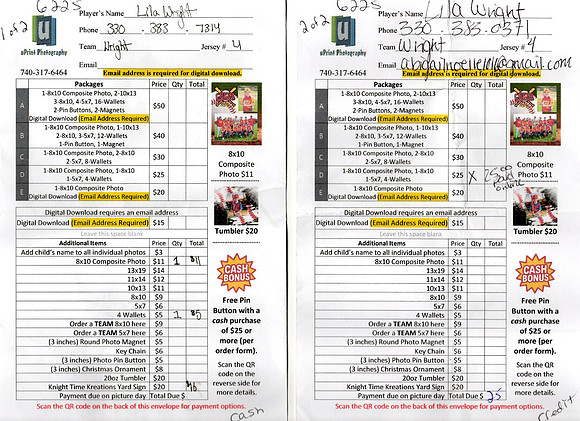 1 of 2
6225
Player's Name Lila Wright
Phone 330 - 383 - 7314
Team Wright Jersey # 4
uPrint Photography
Email
740-317-6464
Email address is required for digital download.
Packages Price Qty Total
A
1-8x10 Composite Photo, 2-10x13
3-8x10, 4-5x7, 16-Wallets
2-Pin Buttons, 2-Magnets
Digital Download (Email Address Required)
$50
B
1-8x10 Composite Photo, 1-10x13
2-8x10, 3-5x7, 12-Wallets
1-Pin Button, 1-Magnet
$40
C
1-8x10 Composite Photo, 2-8x10
2-5x7, 8-Wallets
$30
D
1-8x10 Composite Photo, 1-8x10
1-5x7, 4-Wallets
$25
E
1-8x10 Composite Photo
Digital Download (Email Address Required)
$20
8x10
Composite
Photo $11
Tumbler $20
Digital Download requires an email address
Digital Download (Email Address Required) $15
Leave this space blank
Additional Items Price Qty Total
Add child's name to all individual photos $3
8x10 Composite Photo $11 1 $11
13x19 $14
11x14 $12
10x13 $11
8x10 $9
5x7 $6
4 Wallets $5 1 $5
Order a TEAM 8x10 here $9
Order a TEAM 5x7 here $6
(3 inches) Round Photo Magnet $5
Key Chain $6
(3 inches) Photo Pin Button $5
(3 inches) Christmas Ornament $8
20oz Tumbler $20
Knight Time Kreations Yard Sign $20
Payment due on picture day Total Due $ $16
CASH
BONUS
Free Pin
Button with a
cash purchase
of $25 or
more (per
order form).
Scan the QR
code on the
reverse side for
more details.
Scan the QR code on the back of this envelope for payment options.
cash
2 of 2
6225
Player's Name Lila Wright
Phone 330 - 383 - 0371
Team Wright Jersey # 4
uPrint Photography
Email
740-317-6464
Email address is required for digital download.
Packages Price Qty Total
A
1-8x10 Composite Photo, 2-10x13
3-8x10, 4-5x7, 16-Wallets
2-Pin Buttons, 2-Magnets
Digital Download (Email Address Required)
$50
B
1-8x10 Composite Photo, 1-10x13
2-8x10, 3-5x7, 12-Wallets
1-Pin Button, 1-Magnet
$40
C
1-8x10 Composite Photo, 2-8x10
2-5x7, 8-Wallets
$30
D
1-8x10 Composite Photo, 1-8x10
1-5x7, 4-Wallets
$25 X 25.00
paid
online
E
1-8x10 Composite Photo
Digital Download (Email Address Required)
$20
8x10
Composite
Photo $11
Tumbler $20
Digital Download requires an email address
Digital Download (Email Address Required) $15
Leave this space blank
Additional Items Price Qty Total
Add child's name to all individual photos $3
8x10 Composite Photo $11
13x19 $14
11x14 $12
10x13 $11
8x10 $9
5x7 $6
4 Wallets $5
Order a TEAM 8x10 here $9
Order a TEAM 5x7 here $6
(3 inches) Round Photo Magnet $5
Key Chain $6
(3 inches) Photo Pin Button $5
(3 inches) Christmas Ornament $8
20oz Tumbler $20
Knight Time Kreations Yard Sign $20
Payment due on picture day Total Due $ 25
CASH
BONUS
Free Pin
Button with a
cash purchase
of $25 or
more (per
order form).
Scan the QR
code on the
reverse side for
more details.
Scan the QR code on the back of this envelope for payment options.
credit